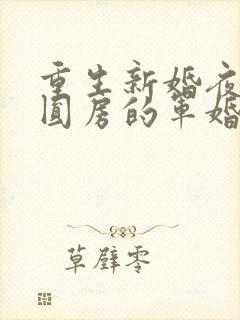 重生新婚夜
圆房的军婚
草壁零